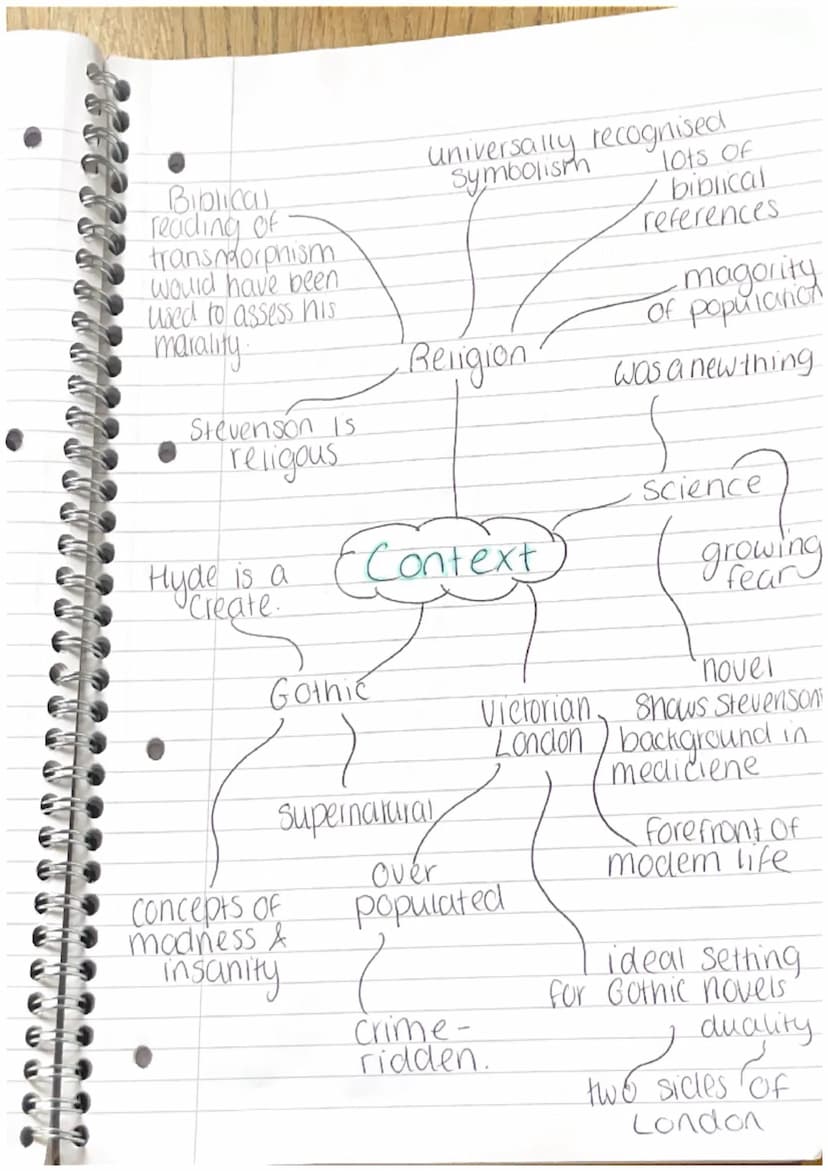 universally recognised
symbolism
lots of
biblical
references
Biblical
reading of
transmorphism
would have been
used to assess his
marality.
magority
of population
Religion
was a new thing
Stevenson is
religous
science
growing
fear
Context
Hyde is a
create.
Gothic
novel
shows Stevenson
background in
mediciene
Victorian
London
supernatural
forefront of
modern life
over
populated
concepts of
madness &
insanity
ideal setting
for Gothic novels
crime-
ridden.
duality
two sides of
London